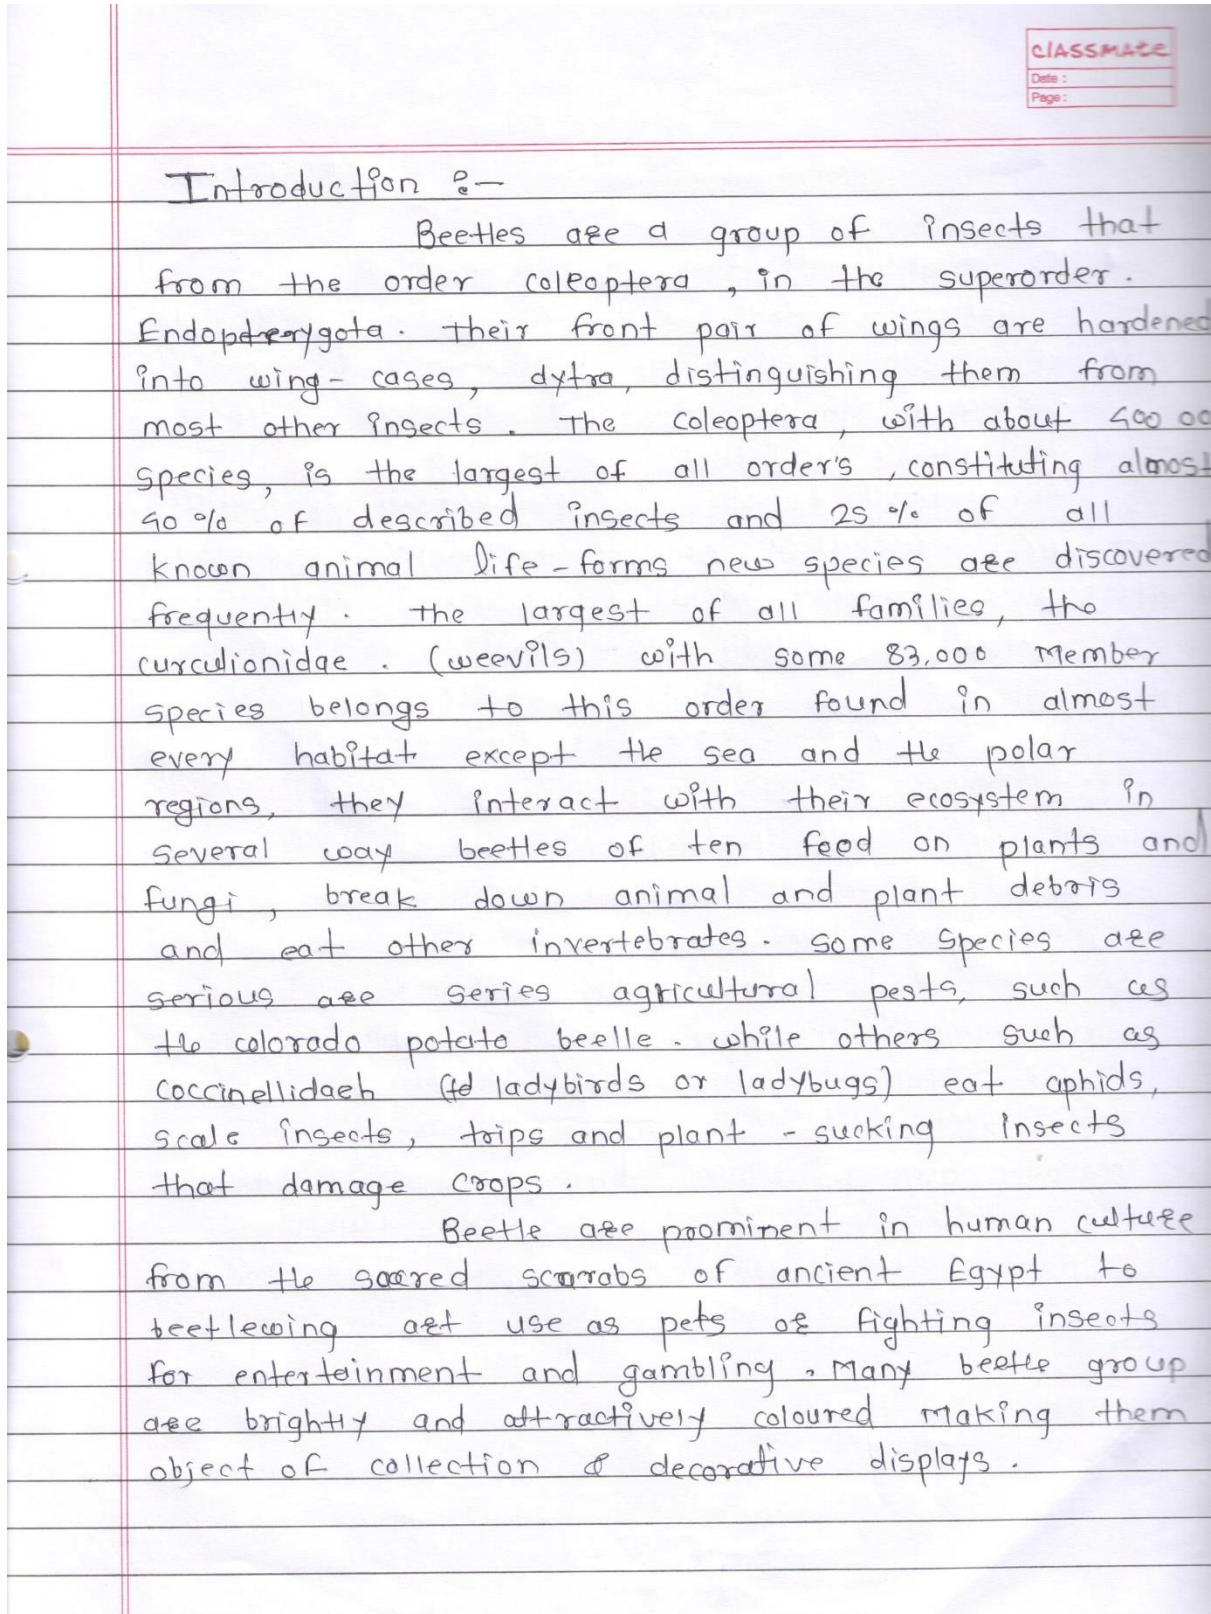 CLASSMATE
Date :
Page :
Introduction :-
Beetles are a group of insects that
from the order coleoptera, in the superorder.
Endopterygota. Their front pair of wings are hardened
into wing-cases, dytra, distinguishing them from
most other insects. The coleoptera, with about 400 00
species, is the largest of all order's, constituting almost
40 % of described insects and 25 % of all
known animal life-forms new species are discovered
frequently. The largest of all families, the
curculionidae. (weevils) with some 83,000 Member
species belongs to this order found in almost
every habitat except the sea and the polar
regions, they interact with their ecosystem in
several way beetles of ten feed on plants and
fungi, break down animal and plant debris
and eat other invertebrates. some species are
serious are series agricultural pests, such as
the colorado potato beelle. while others such as
coccinellidaeh (td ladybirds or ladybugs) eat aphids,
scale insects, trips and plant - sucking insects
that damage crops.
Beetle are prominent in human culture
from the sacred scarabs of ancient Egypt to
beetlewing art use as pets or fighting insects
for entertainment and gambling. Many beetle group
are brightly and attractively coloured making them
object of collection & decorative displays.